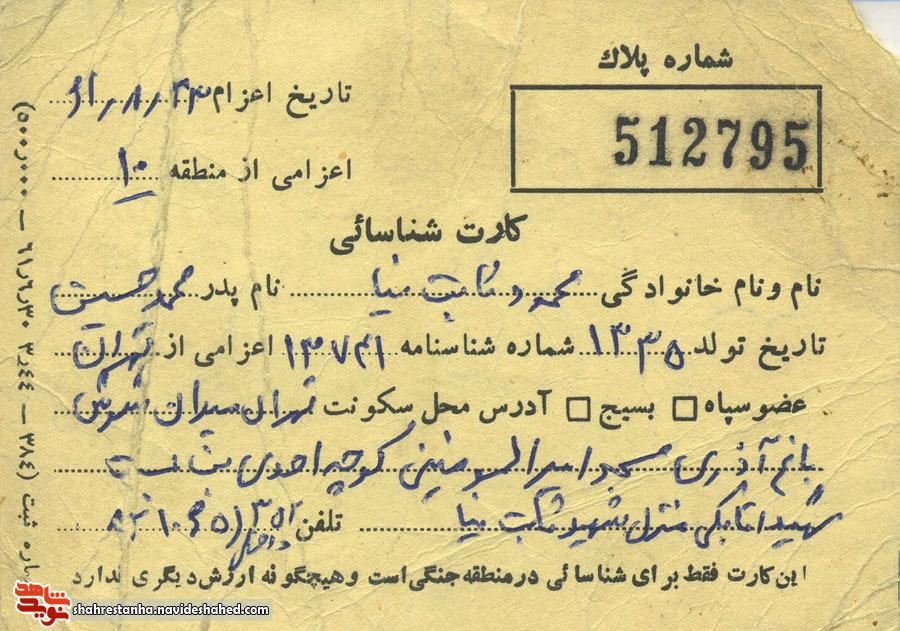 شماره پلاك
512795
تاریخ اعزام ۶۱٫۸٫۲۳
اعزامی از منطقه ۱۰
کارت شناسائی
نام و نام خانوادگی محمود ثابت نیا نام پدر محمد حسن
تاریخ تولد ۱۳۳۵ شماره شناسنامه اعزامی از تهران
عضو سپاه □ بسیج □ آدرس محل سکونت تهران میدان شوش
مسجد امیرالمومنین کوچه احدی بن بست
شهید اتابکی منزل شهید ثابت نیا تلفن
این کارت فقط برای شناسائی در منطقه جنگی است و هیچگونه ارزش دیگری ندارد
شاهد
نوید
shahrestanha.navideshahed.com